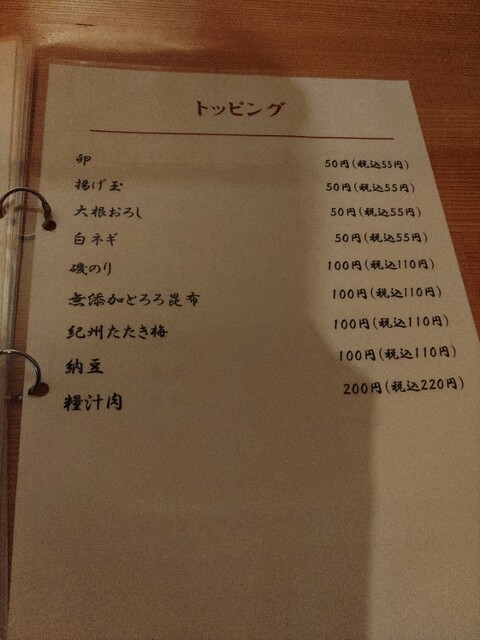 トッピング
卵 50円(税込55円)
揚げ玉 50円(税込55円)
大根おろし 50円(税込55円)
白ネギ 50円(税込55円)
磯のり 100円(税込110円)
無添加とろろ昆布 100円(税込110円)
紀州たたき梅 100円(税込110円)
納豆 100円(税込110円)
糧汁肉 200円(税込220円)